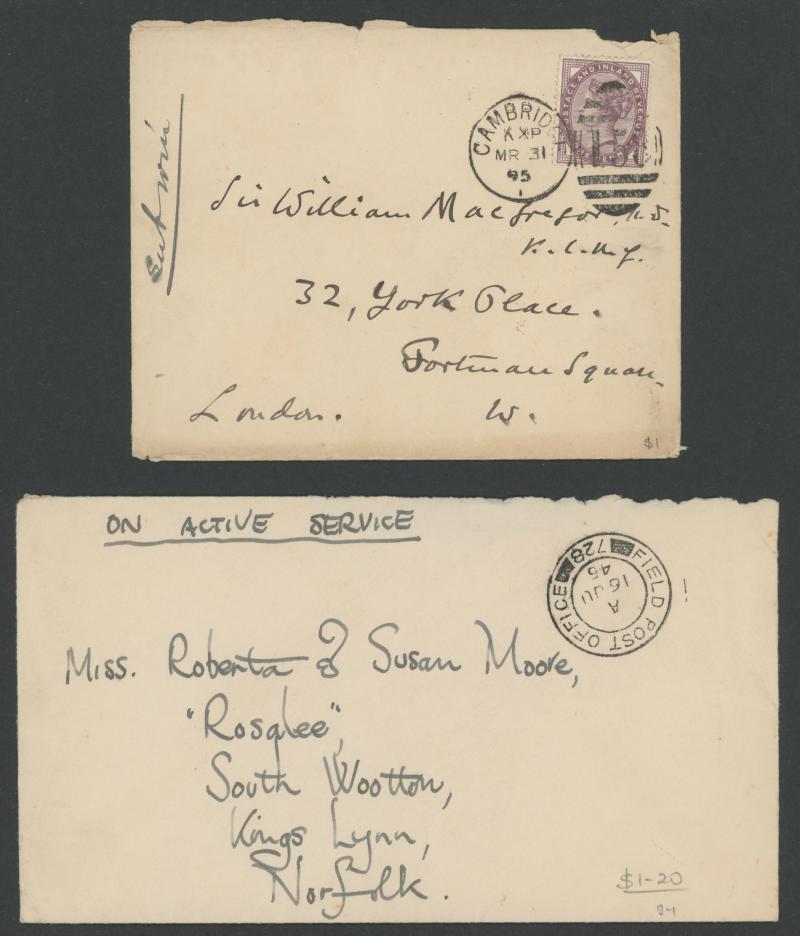 POSTAGE AND INLAND REVENUE
CAMBRIDGE
MR 31
95
1
Sir William MacGregor, M.D.
K.C.M.G.
32, York Place.
Portman Square
London. W.
$1
ON ACTIVE SERVICE
FIELD POST OFFICE
728
A
16 JU
45
Miss. Roberta & Susan Moore,
"Rosalee",
South Wootton,
Kings Lynn,
Norfolk.
$1-20
9-1